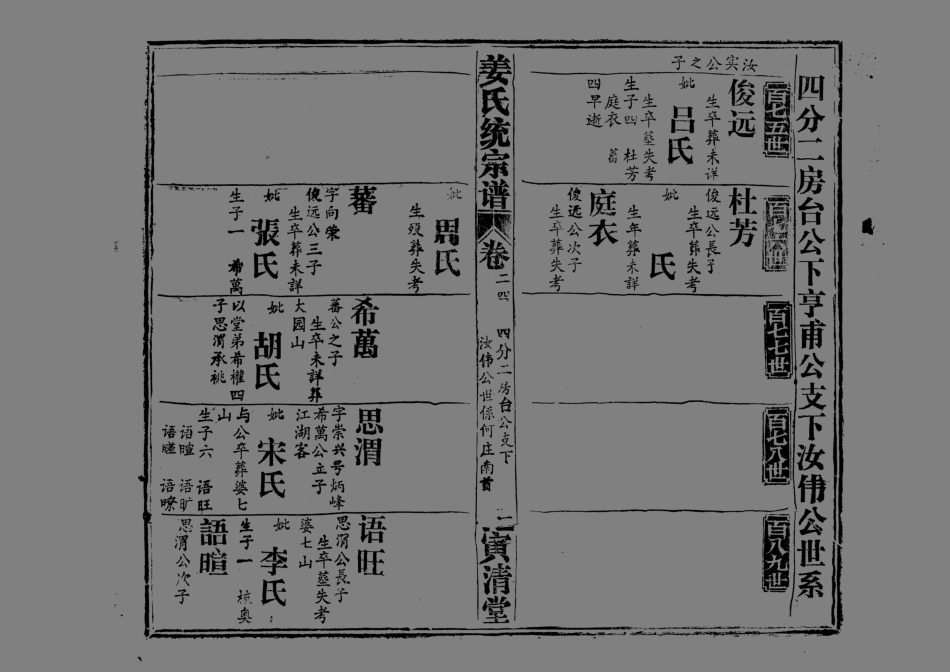 四分二房台公下亨甫公支下汝伟公世系
百七五世
汝实公之子
俊远
生卒葬未详
妣
吕氏
生卒塟失考
生子四 杜芳
庭衣 蕃
四早逝
杜芳
俊远公長子
生卒葬失考
妣
氏
生年葬未詳
庭衣
俊远公次子
生卒葬失考
百七七世
百七八世
百八九世
姜氏统宗谱
卷
二四
四分二房台公支下
汝伟公世係何庄南首
一
寅清堂
妣
周氏
生殁葬失考
蕃
字向荣
俊远公三子
生卒葬未詳
妣
張氏
生子一 希萬
希萬
蕃公之子
生卒未詳葬
大园山
妣
胡氏
以堂弟希權四
子思渭承祧
思渭
字崇兴号炳峰
希萬公立子
江湖客
妣
宋氏
与公卒葬婆七
山
生子六 语旺
语暄 语旷
语瞪 语暸
语旺
思渭公長子
生卒塟失考
婆七山
妣
李氏
生子一 杭奥
語暄
思渭公次子